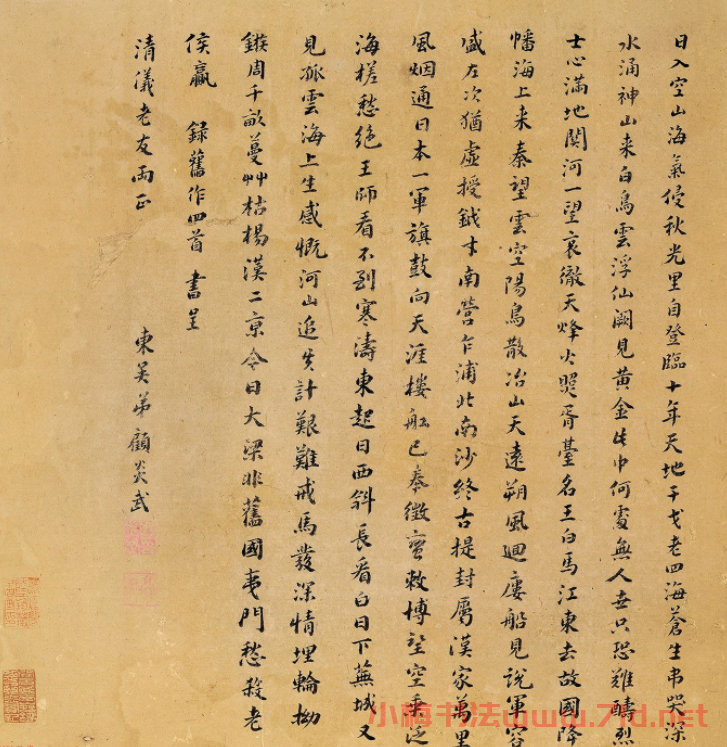 日入空山海氣侵秋光里自登臨十年天地干戈老四海蒼生弔哭深
水涌神山来白鳥雲浮仙闕見黃金此中何處無人世只恐難醻烈
士心滿地關河一望哀徹天烽火照胥臺名王白馬江東去故國降
幡海上来秦望雲空陽鳥散冶山天遠朔風迴廔船見說軍容
盛左次猶虛授鉞才南營乍浦北南沙終古提封屬漢家萬里
風烟通日本一軍旗鼓向天涯樓舩已奉徵蠻敕博望空乘泛
海槎愁絕王師看不到寒濤東起日西斜長看白日下蕪城又
見孤雲海上生感慨河山追失計艱難戎馬發深情埋輪拗
鏃周千畝蔓艸枯楊漢二京今日大梁非舊國夷門愁殺老
侯嬴 録舊作四首 書呈
清儀老友兩正
東吴弟顧炎武
小梅书法